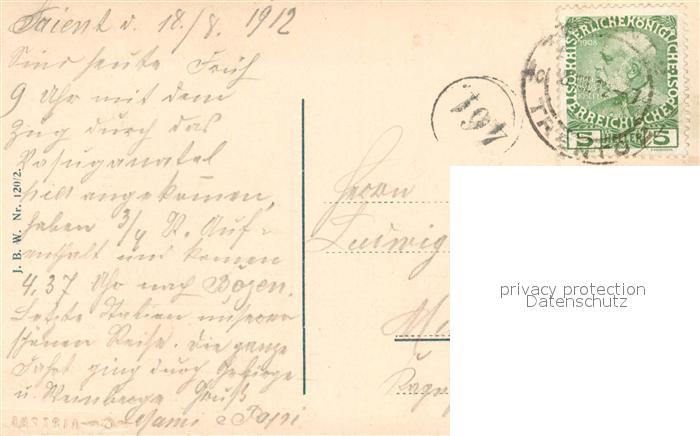 Trient d. 18./8. 1912
Sind heute Früh
9 Uhr mit dem
Zug durch das
Vasuganatal
hier angekommen,
haben 3/4 St. Auf-
enthalt und kommen
4.37 Uhr nach Bozen.
Letzte Station unserer
schönen Reise. Die ganze
Fahrt ging durch Gebirge
u. Weinberge. Gruß
Mami u Papi
J. B. W. Nr. 120/2.
197
KAISERLICHE KÖNIGLICHE
ÖSTERREICHISCHE POST
1908
5 HELLER 5
TRIENT
Herrn
Ludwig
privacy protection
Datenschutz